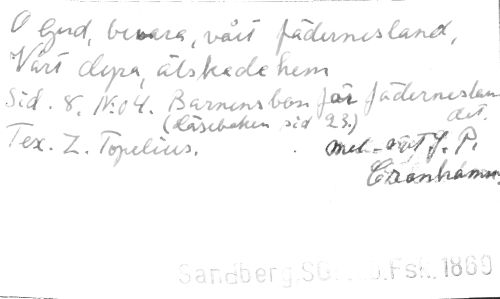 O Gud, bevara, vårt fädernesland,
Vårt dyra, älskade hem
Sid. 8. No 4. Barnens bön för fäderneslan
det.
(Läseboken sid 23.)
Tex. Z. Topelius. mel. J. P.
Cronhamn.
Sandberg.SG Fsk.1869